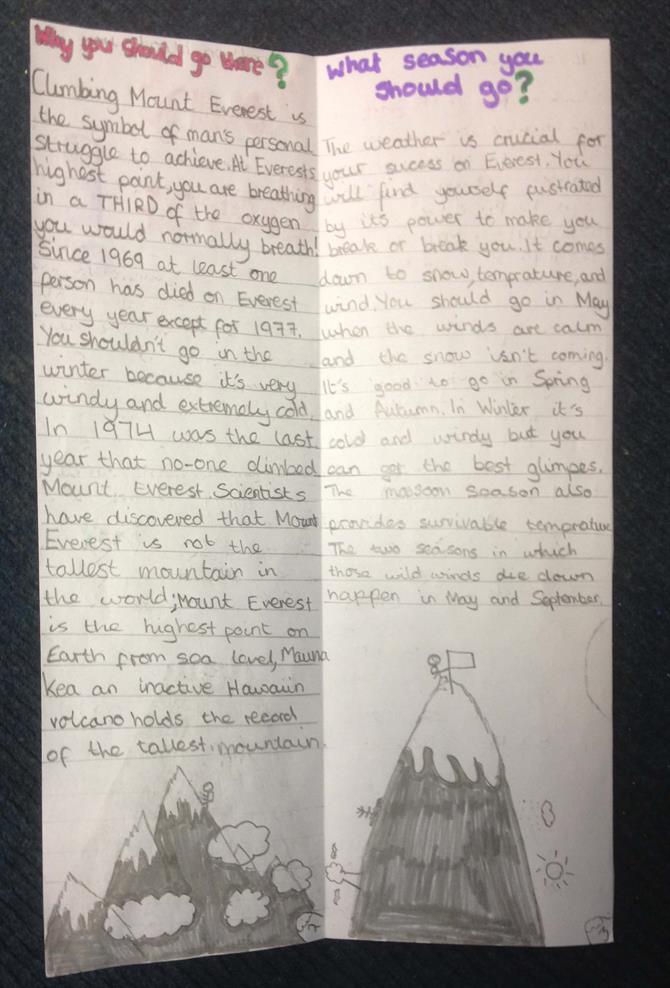 Why you should go there?
Climbing Mount Everest is
the symbol of man's personal
struggle to achieve. At Everests
highest point, you are breathing
in a THIRD of the oxygen
you would normally breath!
Since 1969 at least one
person has died on Everest
every year except for 1977.
You shouldn't go in the
winter because it's very
windy and extremely cold.
In 1974 was the last
year that no-one climbed
Mount Everest. Scientists
have discovered that Mount
Everest is not the
tallest mountain in
the world; Mount Everest
is the highest point on
Earth from sea level, Mauna
Kea an inactive Hawaiin
volcano holds the record
of the tallest mountain.
What season you
should go?
The weather is crucial for
your sucess on Everest. You
will find yourself fustrated
by its power to make you
break or break you. It comes
down to snow, temprature, and
wind. You should go in May
when the winds are calm
and the snow isn't coming.
It's good to go in Spring
and Autumn. In Winter it's
cold and windy but you
can get the best glimpes.
The masoon season also
provides survivable temprature
The two seasons in which
those wild winds die down
happen in May and September.